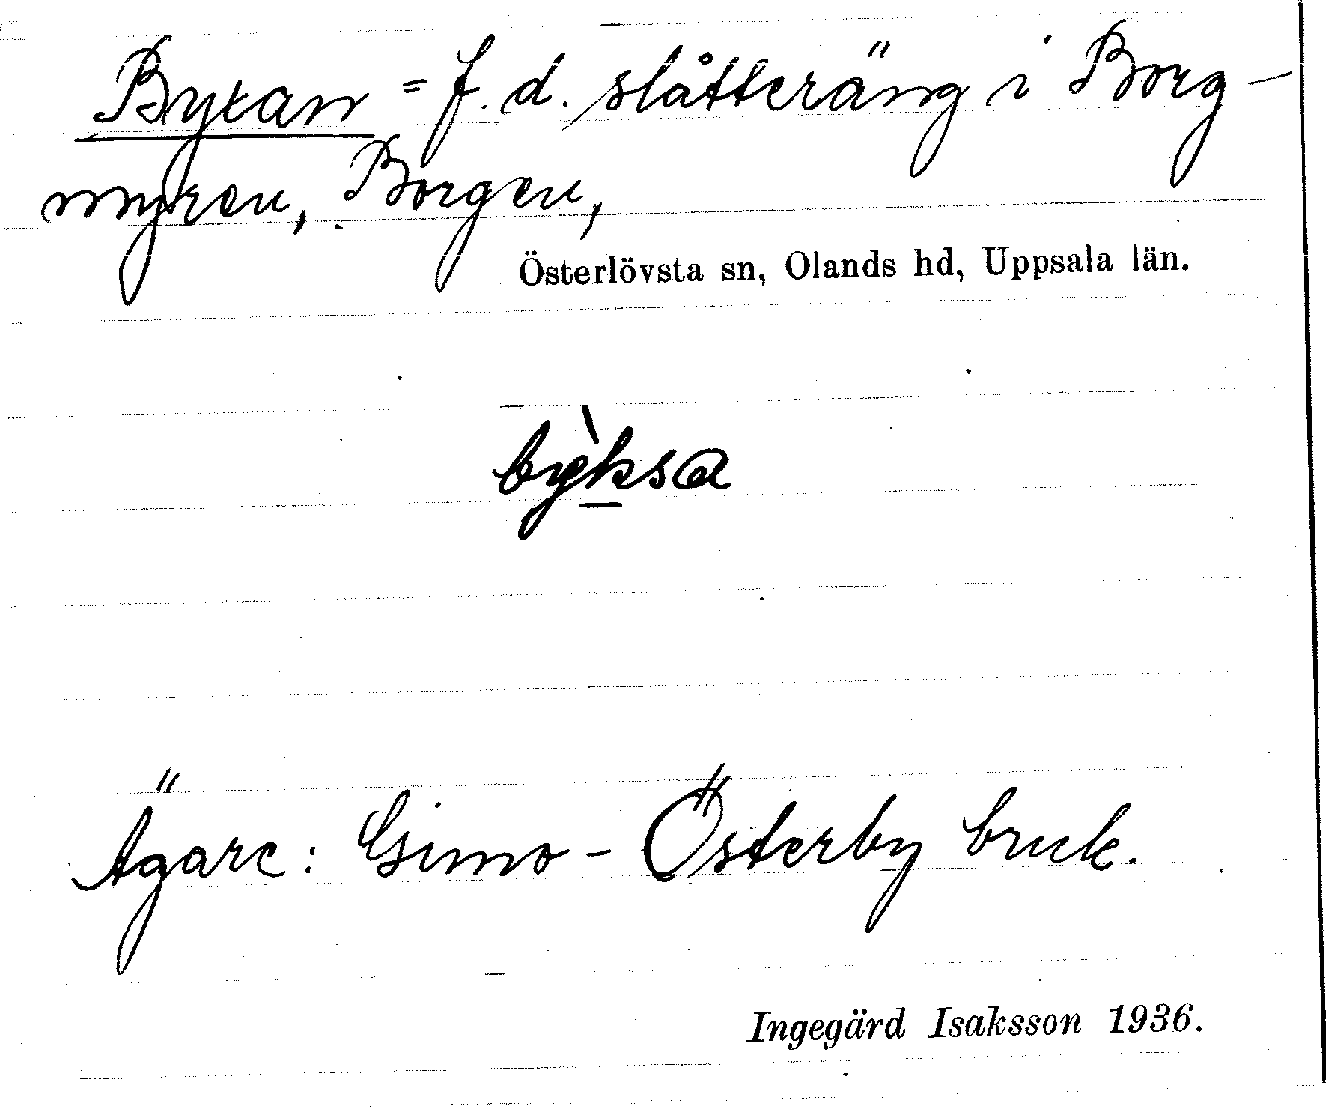 Byxan = f. d. slåtteräng i Borg-
myren, Borgen,
Österlövsta sn, Olands hd, Uppsala län.
bỳksa
Ägare: Gimo-Österby bruk.
Ingegärd Isaksson 1936.